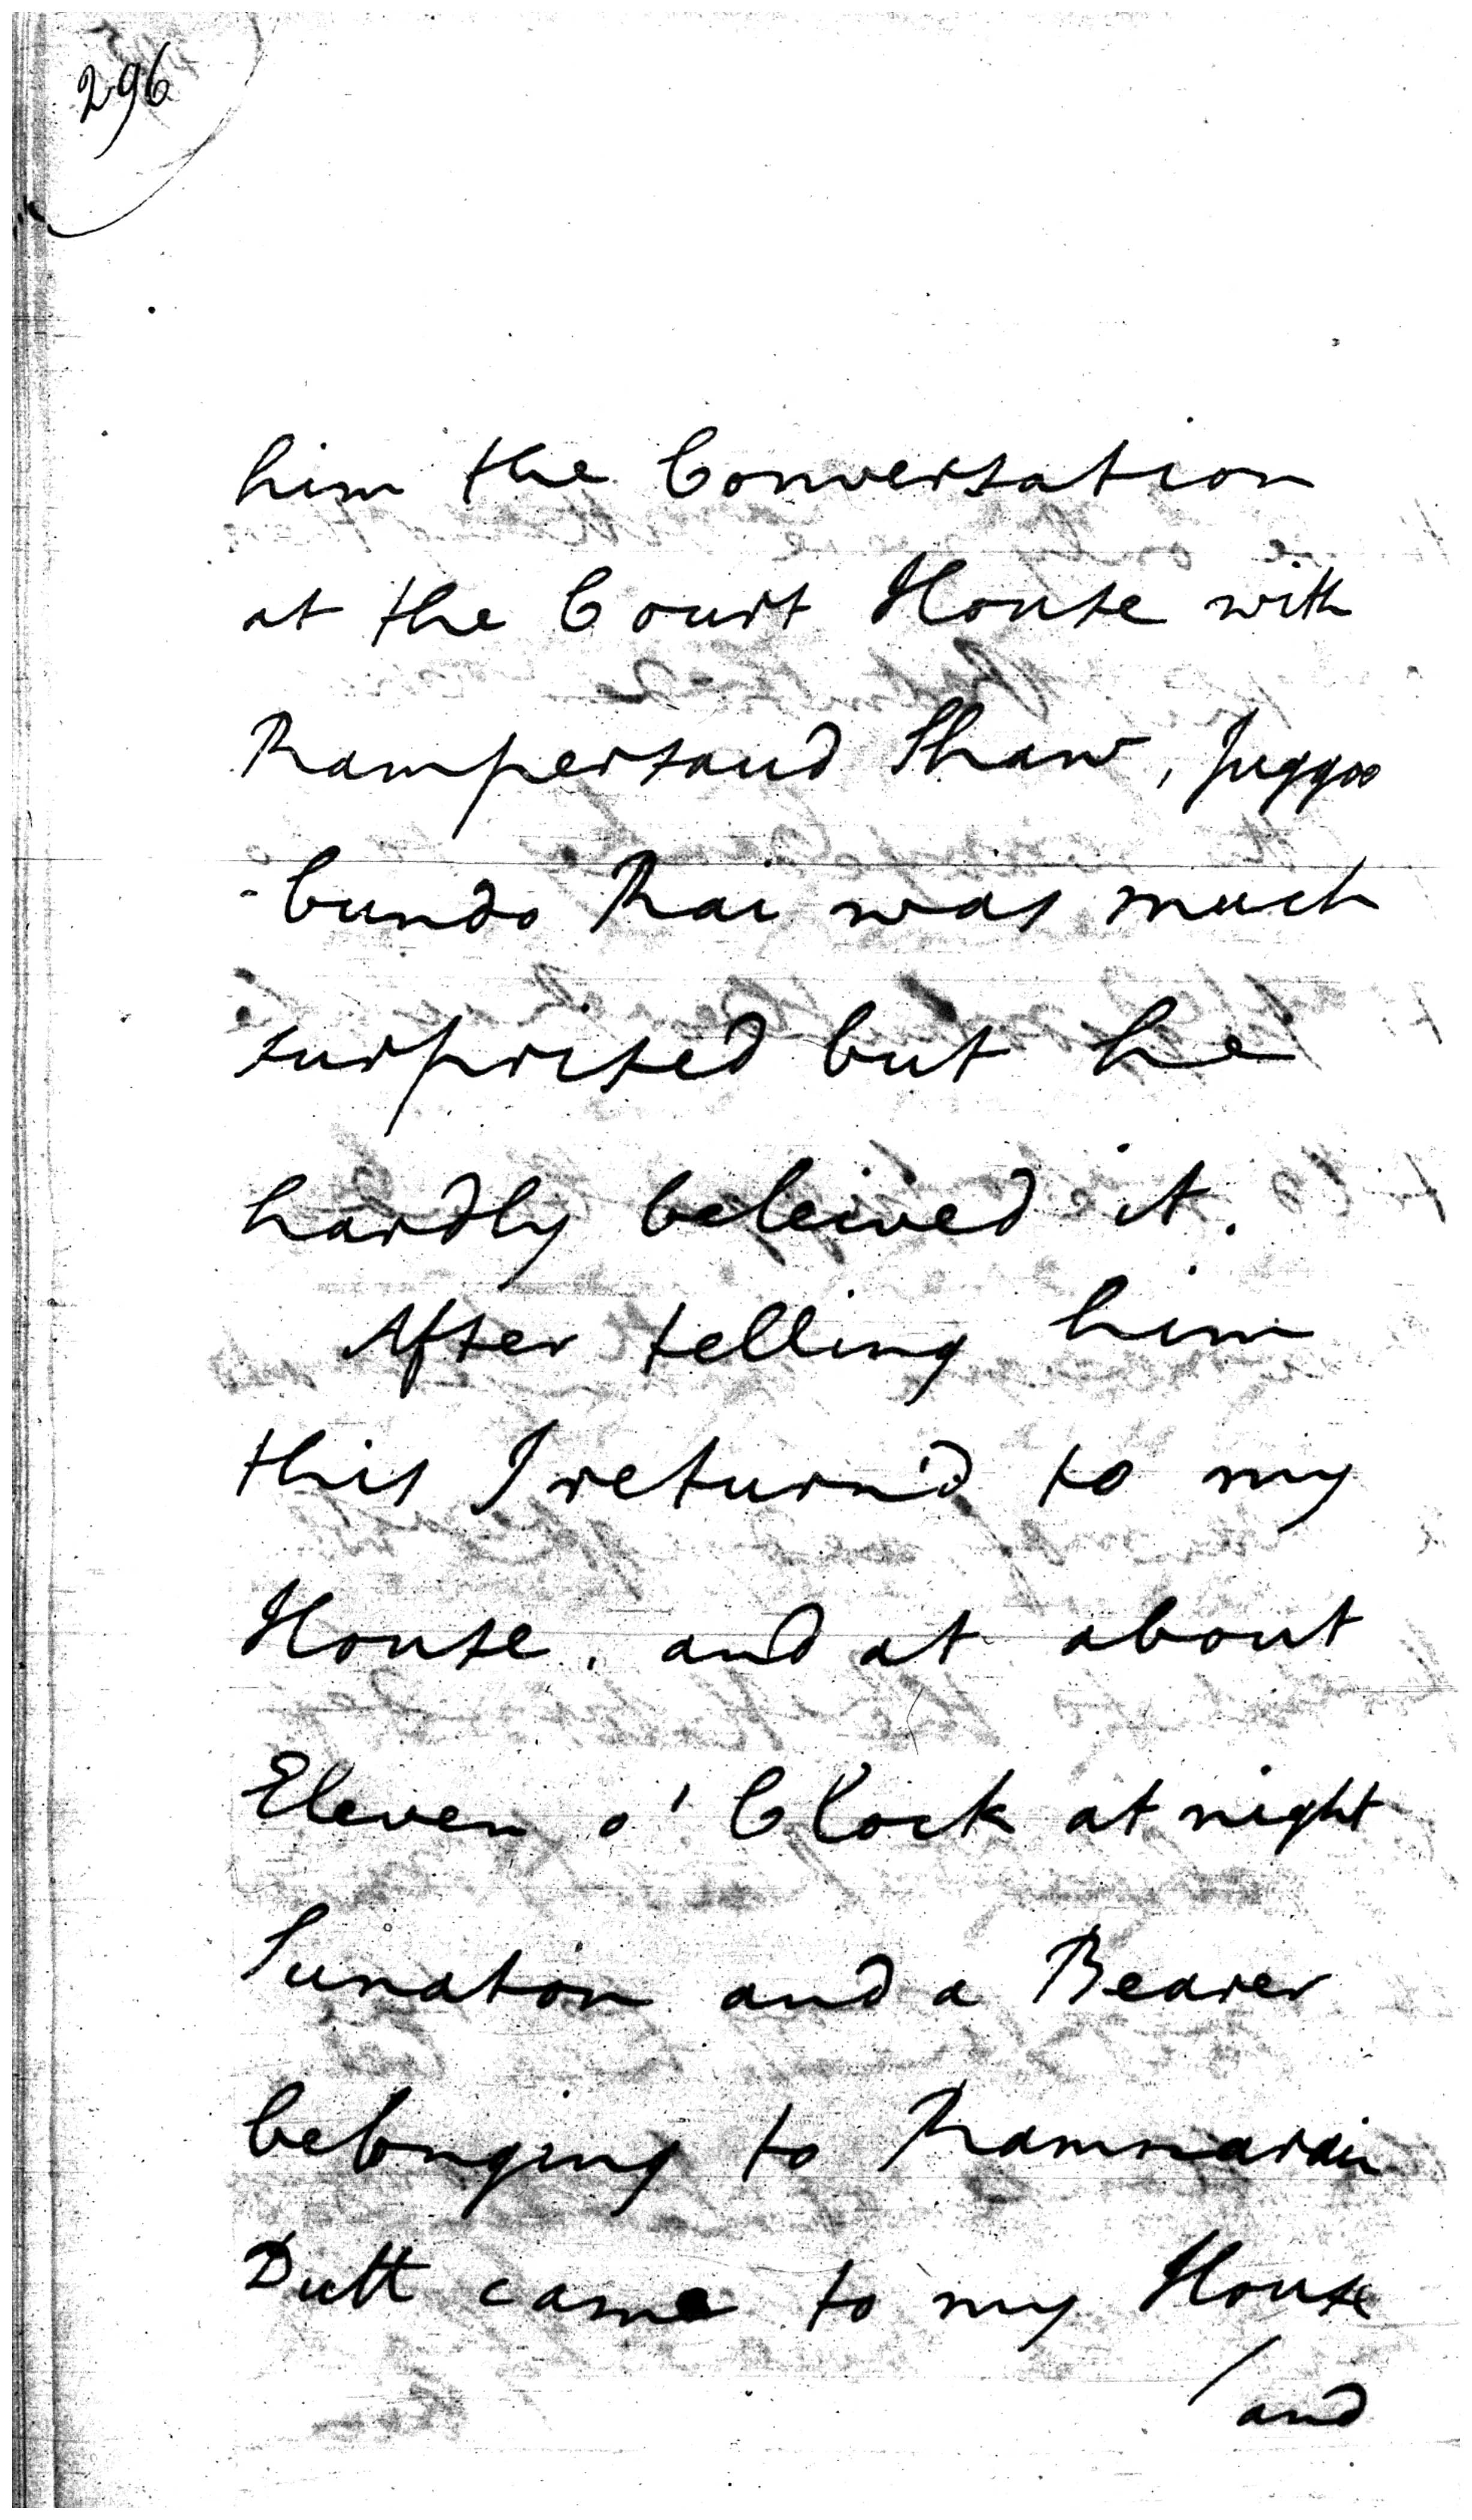 296
him the Conversation
at the Court House with
Rampersaud Shaw, Juggoo
-bundo Rai was much
surprised but he
hardly beleived it.
After telling him
this I return'd to my
House, and at about
Eleven o' Clock at night
Sunaton and a Bearer
belonging to Ramnarain
Dutt came to my House
/and